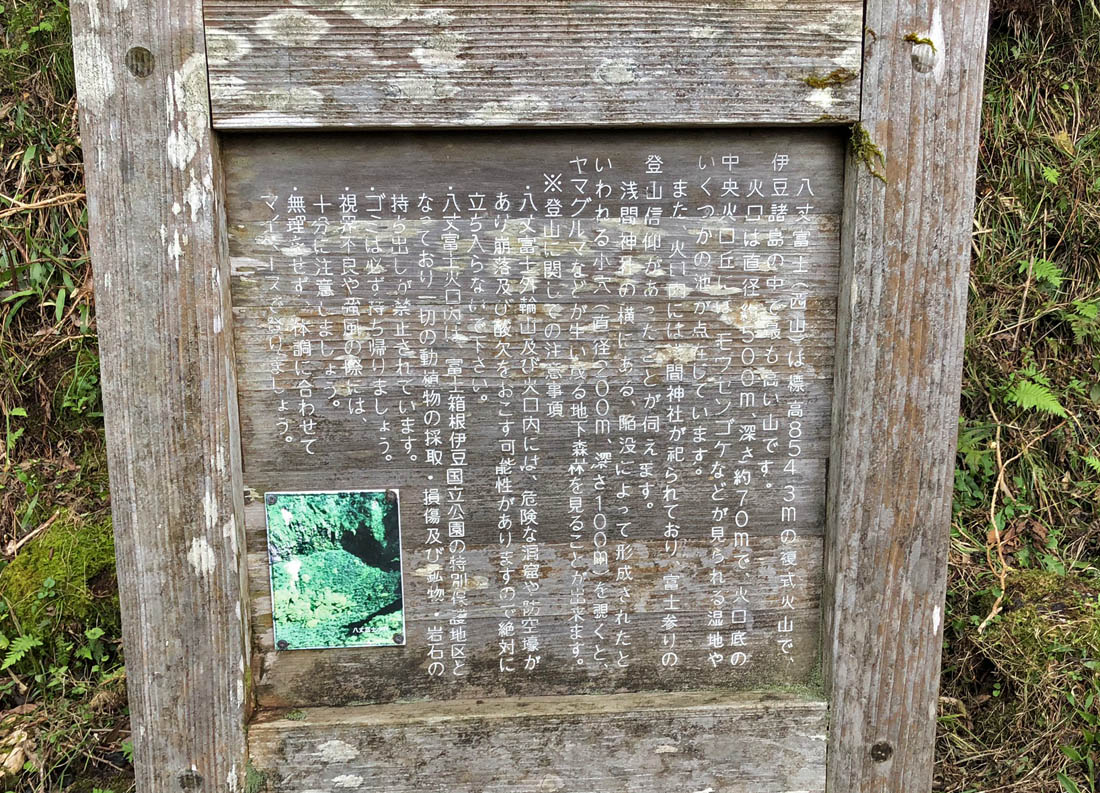 八丈富士(西山)は標高854.3mの複式火山で、
伊豆諸島の中で最も高い山です。
火口は直径約500m、深さ約70mで、火口底の
中央火口丘にはモウセンゴケなどが見られる湿地や
いくつかの池が点在しています。
また、火口内には浅間神社が祀られており、富士参りの
登山信仰があったことが伺えます。
浅間神社の横にある、陥没によって形成されたと
いわれる小穴(直径 00m、深さ100m)を覗くと、
ヤマグルマなどが生い茂る地下森林を見ることが出来ます。
※登山に関しての注意事項
・八丈富士外輪山及び火口内には、危険な洞窟や防空壕が
あり崩落及び酸欠をおこす可能性がありますので絶対に
立ち入らないで下さい。
・八丈富士火口内は、富士箱根伊豆国立公園の特別保護地区と
なっており一切の動植物の採取・損傷及び鉱物・岩石の
持ち出しが禁止されています。
・ゴミは必ず持ち帰りましょう。
・視界不良や強風の際には、
十分に注意しましょう。
・無理をせず、体調に合わせて
マイペースで歩きましょう。
八丈富士